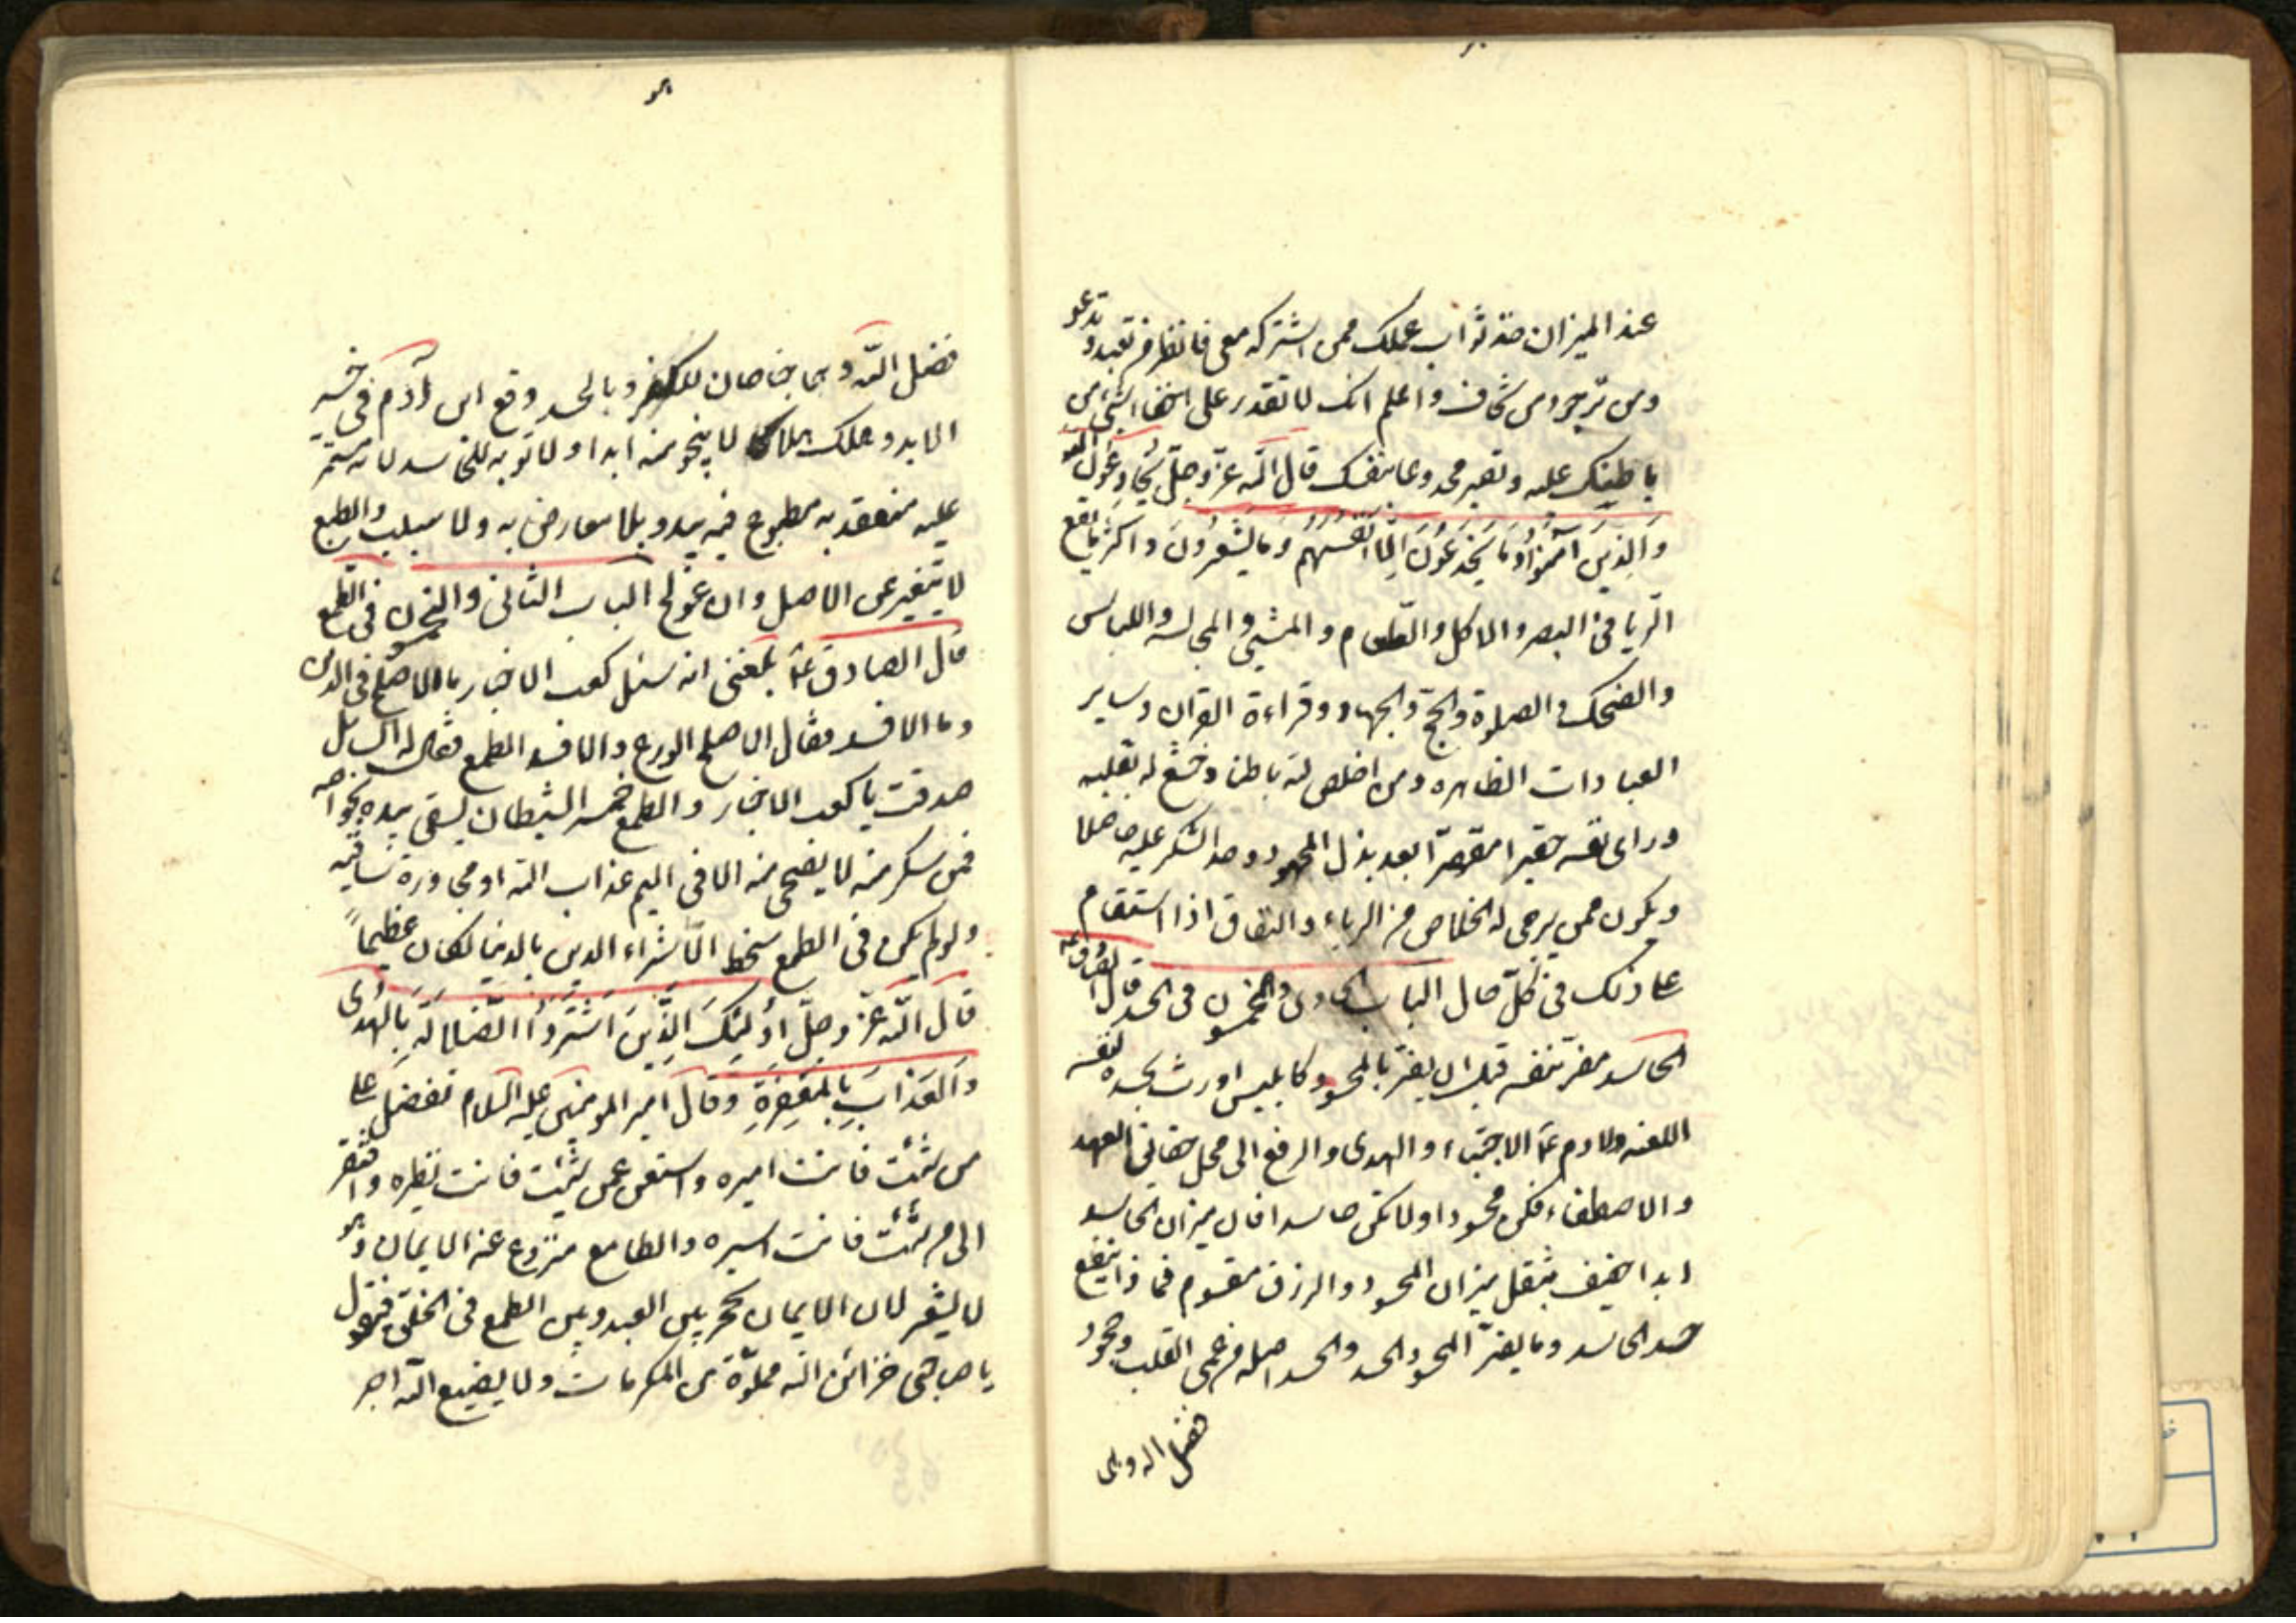 عند الميزان خذ ثواب عملك ممن اشتركه معى فانظر من تعبد و تدعو
ومن ترجو ومن تخاف واعلم انك لا تقدر على اخفاء شئ من
باطنك عليه وتصير مخدوعا بنفسك قال الله عزّ وجلّ يُخَادِعُونَ اللهَ
وَالَّذِينَ آمَنُوا وَمَا يَخْدَعُونَ اِلَّا اَنْفُسَهُمْ وَمَا يَشْعُرُونَ واكثر ما يقع
الريا فى البصر والاكل والكلام والمشى والمجالسة واللباس
والضحك والصلوة والحج والجهاد وقراءة القران وساير
العبادات الظاهره ومن اخلص لله باطنا وخشع له بقلبه
وراى نفسه حقيرا مقصرّا بعد بذل المجهود وجد الشكر عليه حاصلا
ويكون ممن يرجى له الخلاص من الرياء والنفاق اذا استقام
على ذلك فى كلّ حال الباب الحادى والخمسون فى الحسد قال الصادق ع
الحاسد مضر بنفسه قبل ان يضر بالمحسود كابليس اورث بحسده لنفسه
اللعنه ولادم ع الاجتباء والهدى والرفع الى محل حقايق العهد
والاصطفاء فكن محسودا ولا تكن حاسدا فان ميزان الحاسد
ابدا خفيف بثقل ميزان المحسود والرزق مقسوم فما ذا ينفع
حسد الحاسد وما يضرّ المحسود الحسد والحسد اصله من عمى القلب وجحود
فضل الله وهى
هو
فضل الله وهما جناحان للكفر وبالحسد وقع ابن آدم فى حسرة
الابد وهلك هلاكا لا ينجو منه ابدا ولا توبه للحاسد لانه مستمر
عليه معتقد به مطبوع فيه يبدو بلا معارض به ولا سبب والطبع
لا يتغير عن الاصل وان عولج الباب الثانى والخمسون فى الطمع
قال الصادق ع بلغنى انه سئل كعب الاخبار ما الاصلح فى الدين
وما الافسد فقال الاصلح الورع والافسد الطمع فقال له السائل
صدقت يا كعب الاخبار والطمع خمر الشيطان يسقى بيده لخواصه
فمن سكر منه لا يضحى منه الا فى اليم عذاب الله او مجاورة ساقيه
ولو لم يكن فى الطمع سخط الّا شراء الدين بالدنيا لكان عظيماً
قال الله عزّ وجلّ أُولَئِكَ الَّذِينَ اشْتَرَوُا الضَّلَالَةَ بِالْهُدَى
وَالْعَذَابَ بِالْمَغْفِرَةِ وقال امير المومنين عليه السلام تفضل على
من شئت فانت اميره واستغن عمن شئت فانت نظيره وافتقر
الى من شئت فانت اسيره والطامع منزوع عنه الايمان وهو
لا يشعر لان الايمان يحجز بين العبد وبين الطمع فى الخلق فيقول
يا صاحبى خزائن الله مملوّة من المكرمات ولا يضيع الله اجر